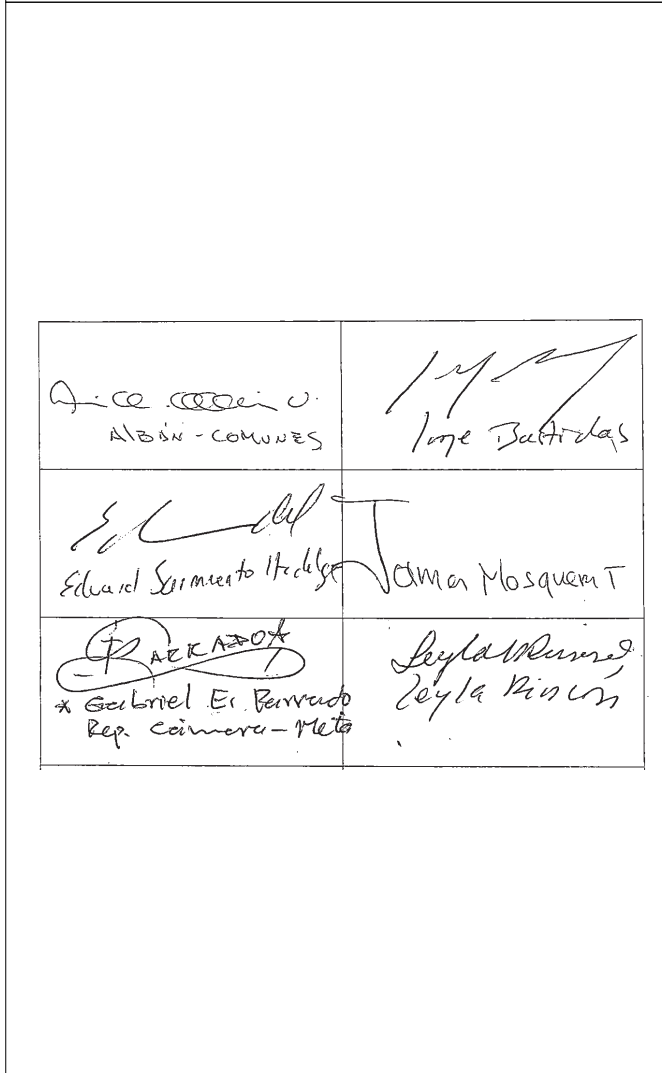 Albán - COMUNES
Jorge Bastidas
Eduard Sarmiento Hidalgo
Jamer Mosquera T
BARRADO
* Gabriel E. Parrado
Rep. Cámara - Meta
Leyla Rincón